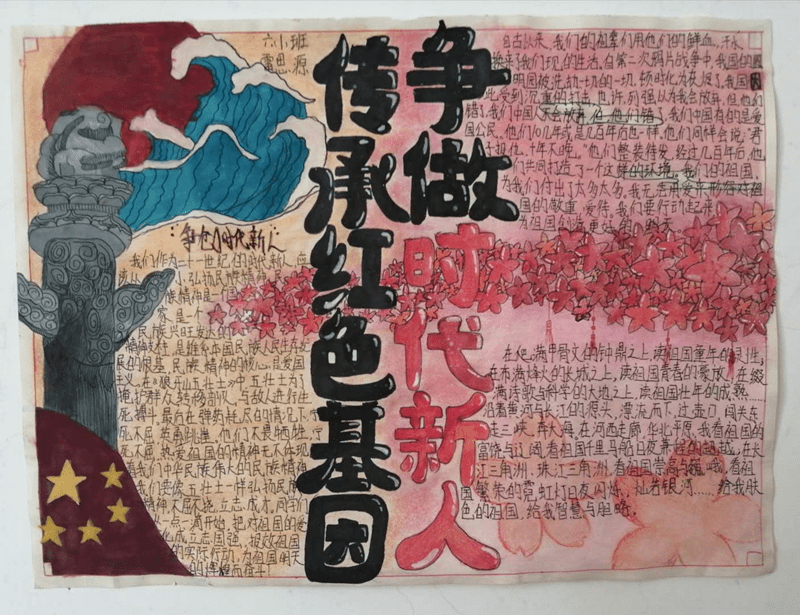 六小班
雷思源
传承红色基因
争做时代新人
自古以来，我们的祖辈们用他们的鲜血、汗水，
换来了我们现的生活。自第一次鸦片战争中，我国的圆
明园被洗劫一切的一切，顿时化为灰烬了，我国
此受到沉重的打击。也许，列强认为我会放弃，但他们
错了，我们中国不会放弃
我们中国有的是爱
国公民。他们10几年或是几百年后也一样，他们同样会说：“君
十年不晚。”他们整装待发，经过几百年后，他
们共同打造了一个这样的环境。我们的祖国
为我们付出了太多太多，我无
国的敬重、爱侍。我们要行动起来，
为祖国创造更好的明天
“争做时代新人”
我们作为二十一世纪的时代新人，应
弘扬民族精神
民族精神是一个
民族兴旺发达的
精神支柱，是维系中国民族人民生肖发
展的根基。民族精神的核心，是爱国
主义。在《狼牙山五壮士》中，五壮士为了
掩护群众，转移前沿，与敌人进行生
死搏斗，最后在弹药耗尽的情况下，宁
死不屈，英勇跳崖，他们不畏牺牲，宁
死不屈，热爱祖国的精神无不体现
着我们中华民族伟大的民族精神
我们要像五壮士一样弘扬民族
精神，不屈不挠，立志成才，同学们
一点一滴开始，把对祖国的爱
化成立志国强，报效祖国
的实际行动，为祖国明天
的辉煌而奋斗！
在爬满甲骨文的钟鼎之上，读祖国童年的灵性，
在布满烽火的长城之上，读祖国青春的豪放，在缀
满诗歌与科学的大地之上，读祖国壮年的成熟……
沿着黄河与长江的源头，漂流而下，过壶口，闯关东，
走三峡，奔大海。在河西走廊，华北平原，我看祖国的
富饶与辽阔，看祖国千里马般日夜兼程的超越，在长
江三角洲，珠江三角洲，看祖国崇高与巍峨，看祖
国繁荣的霓虹灯日夜闪烁，灿若银河……给我肤
色的祖国，给我智慧与胆略。